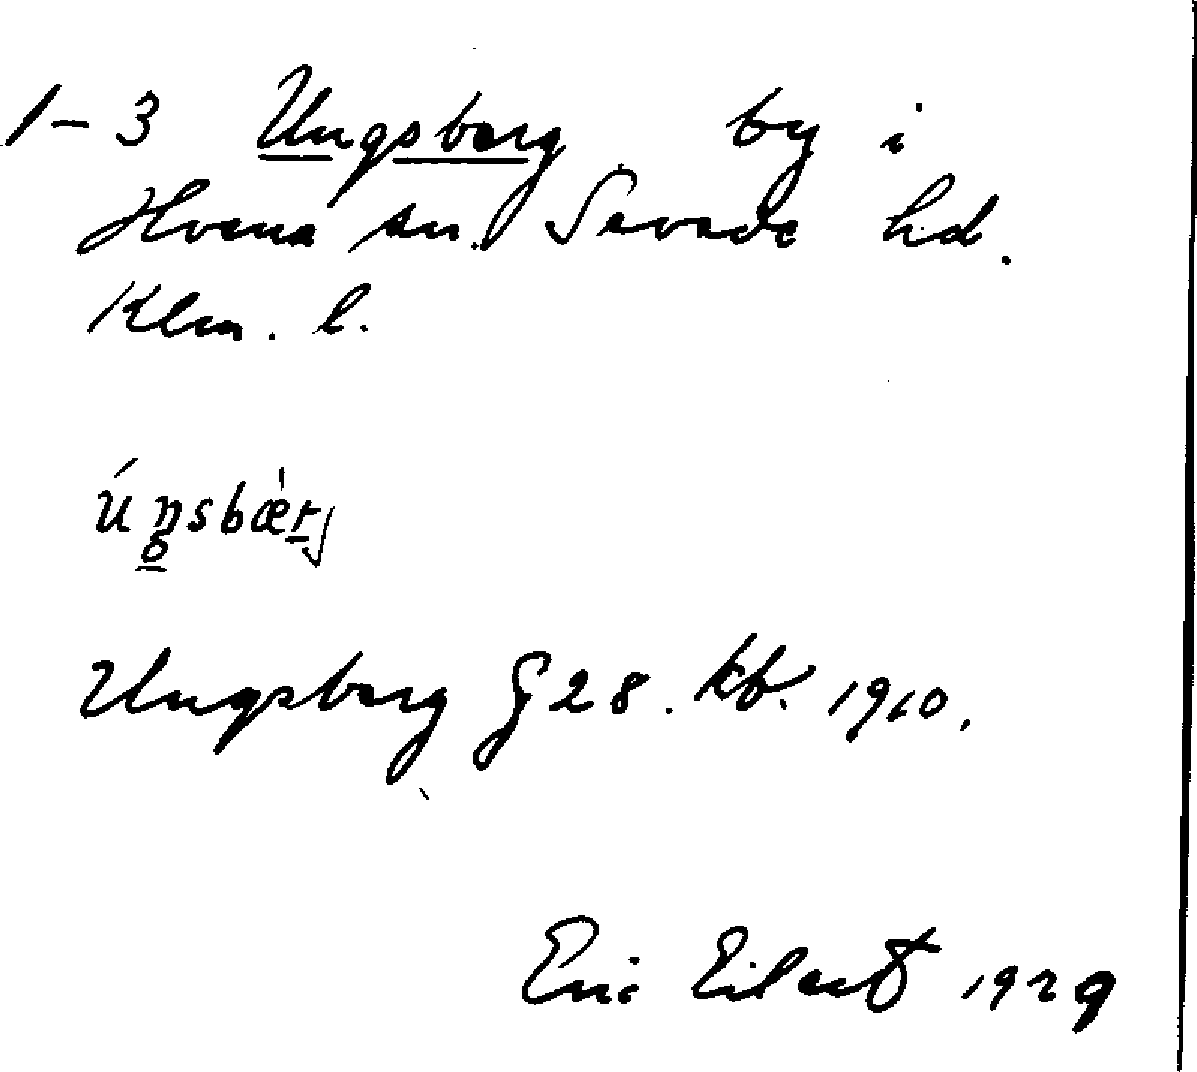 1-3 Ungsberg by i
Hvena sn. Sevede hd.
Klm. l.
úŋsbæ̀rj
Ungsberg G 28. kb. 1910.
Eric Eilert 1929